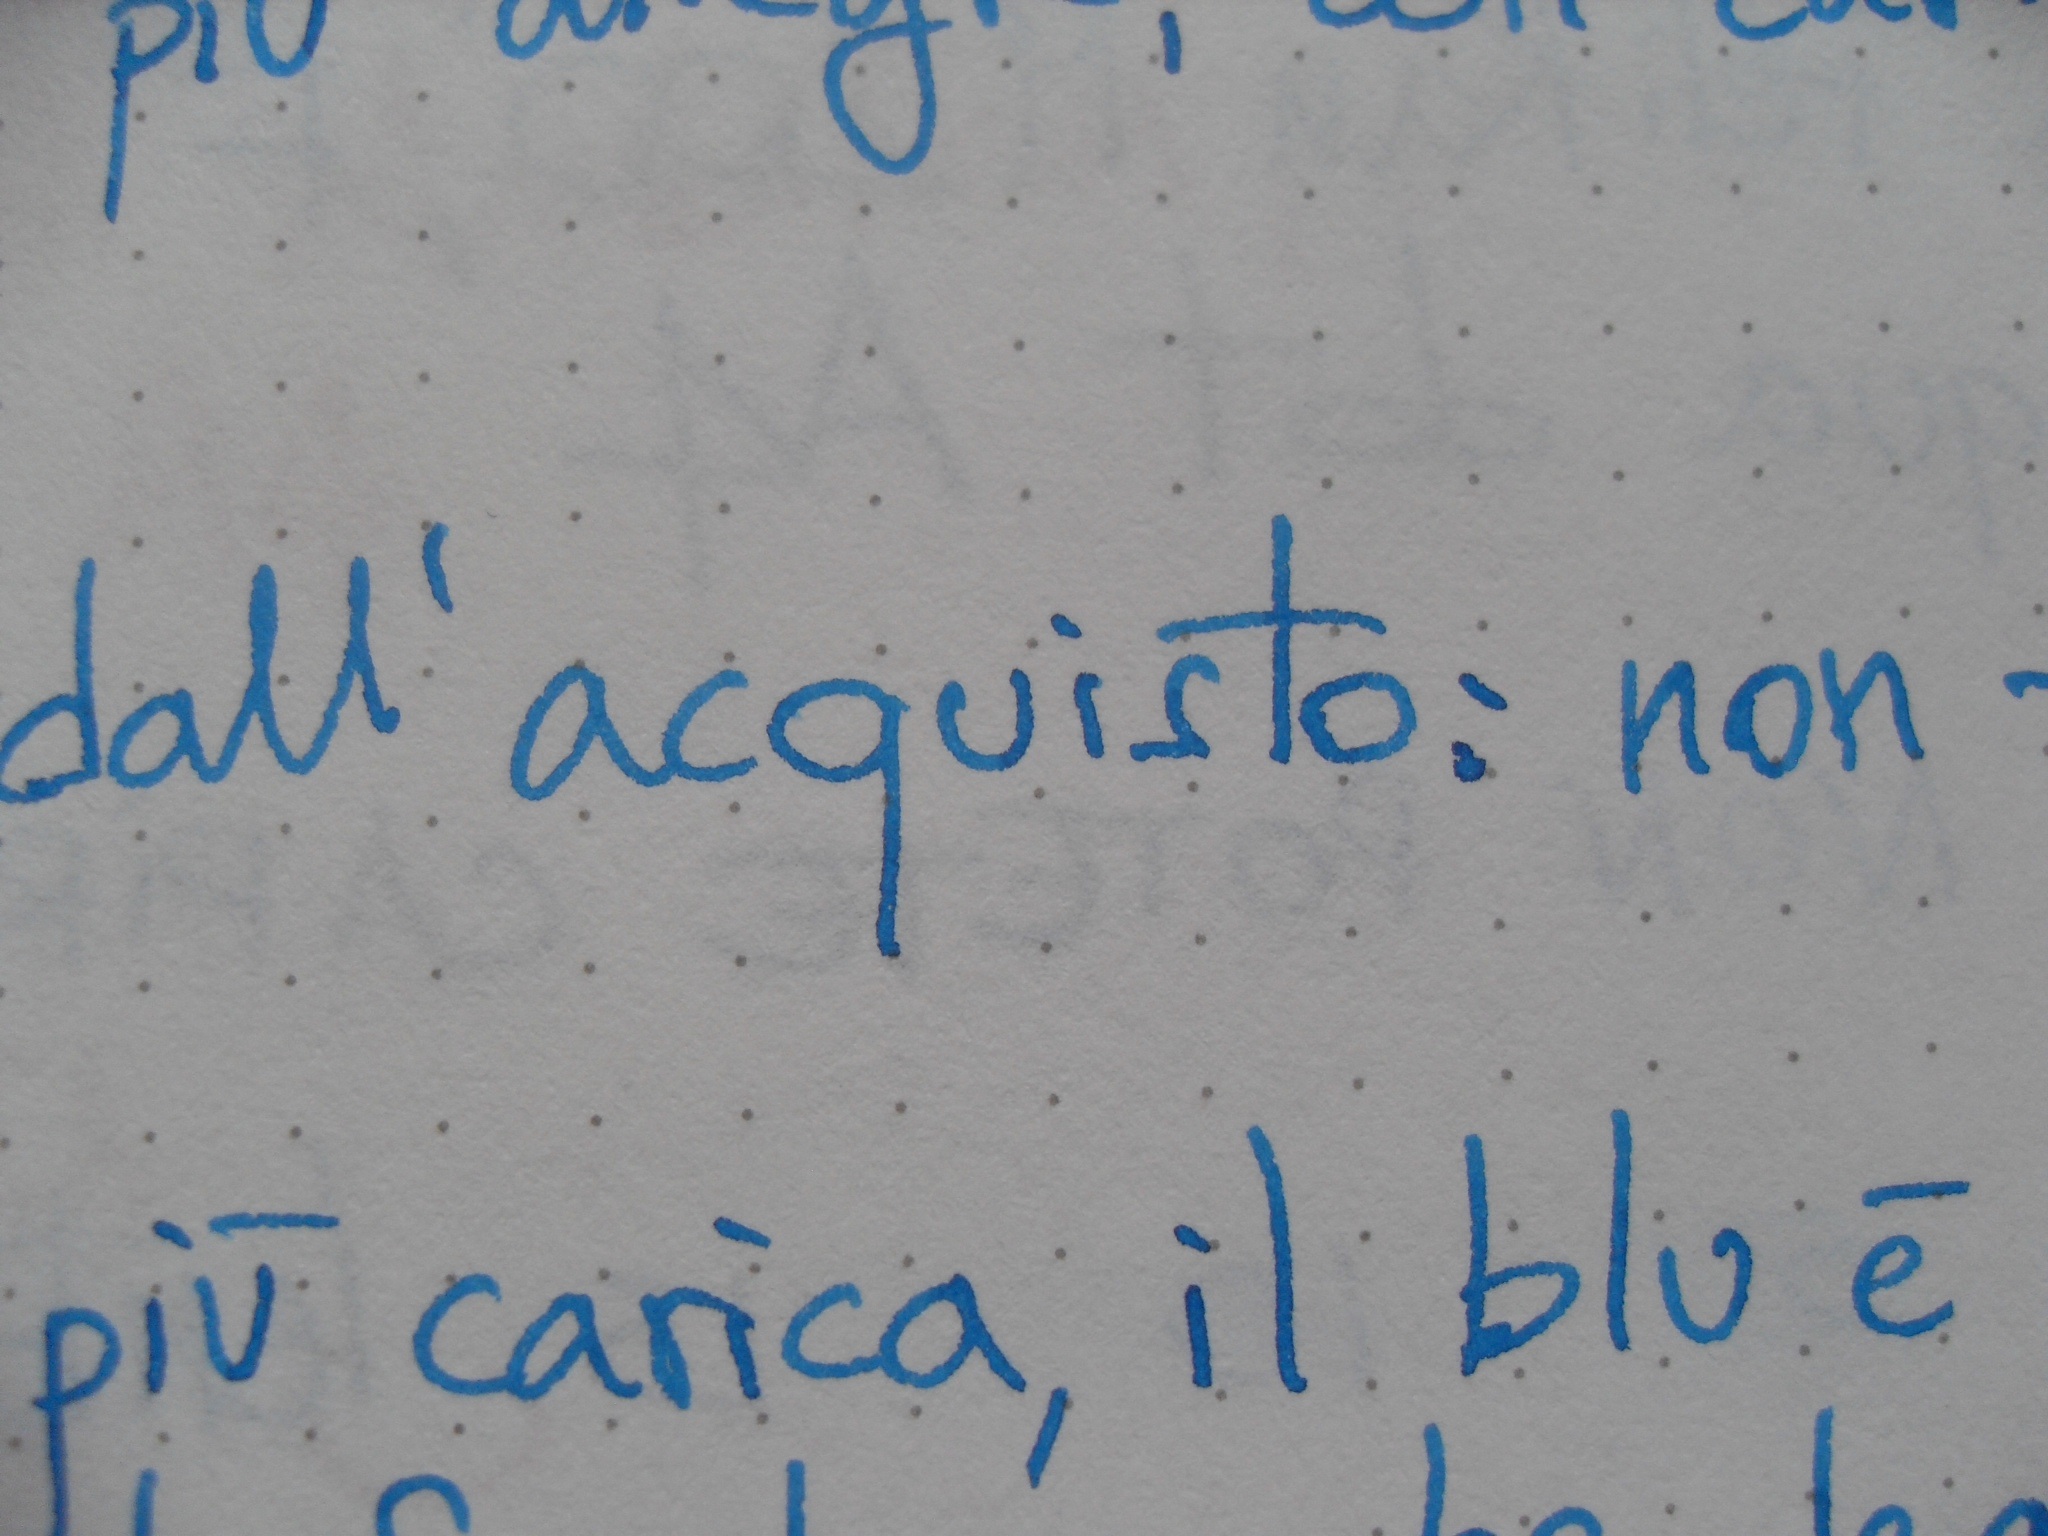 più allegre, con
dall'acquisto: non
più carica, il blu è